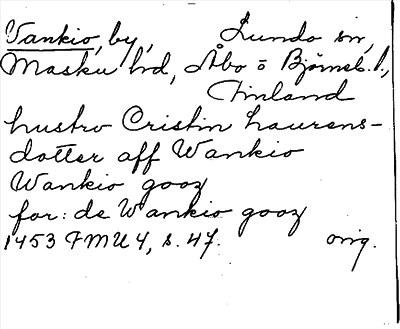 Vankio, by, Lundo sn,
Masku hd, Åbo o Björneb. l.,
Finland
hustro Cristin Laurens-
dotter aff Wankio
Wankio gooz
for: de Wankio gooz
1453 FMU 4, s. 47. orig.